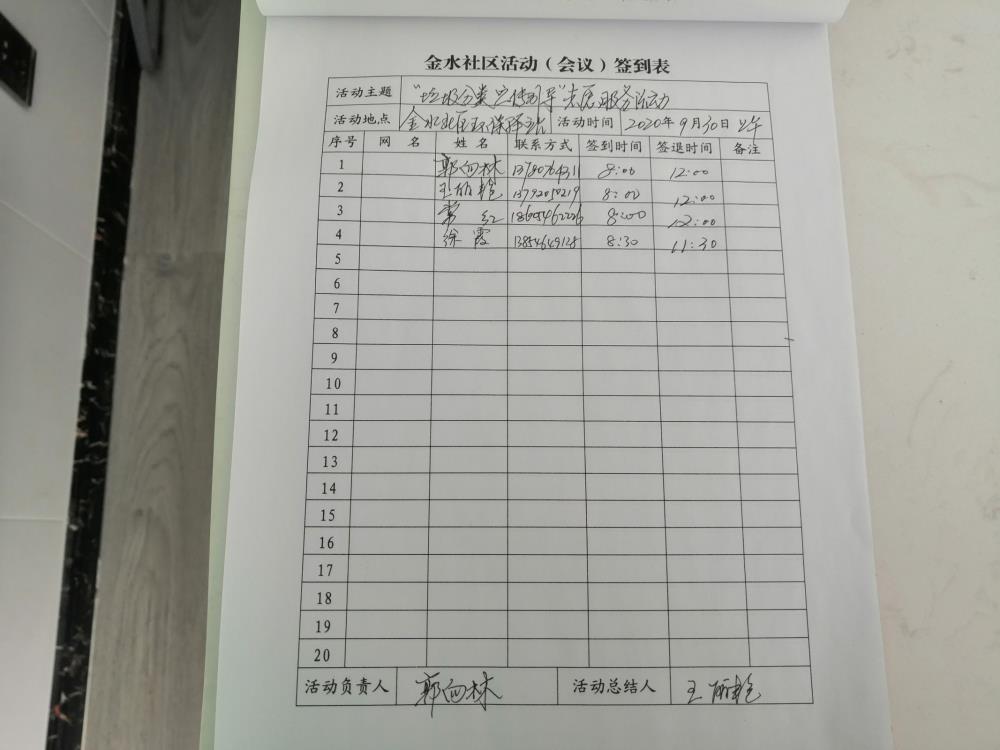 金水社区活动（会议）签到表
活动主题 “垃圾分类宣传引导”志愿服务活动
活动地点 金水社区环保驿站 活动时间 2020年9月30日上午
序号 网 名 姓 名 联系方式 签到时间 签退时间 备注
1 郭向林 8:00 12:00
2 王丽艳 13792050219 8:00 12:00
3 常 红 8:00 12:00
4 徐霞 13854649128 8:30 11:30
5
6
7
8
9
10
11
12
13
14
15
16
17
18
19
20
活动负责人 郭向林 活动总结人 王丽艳